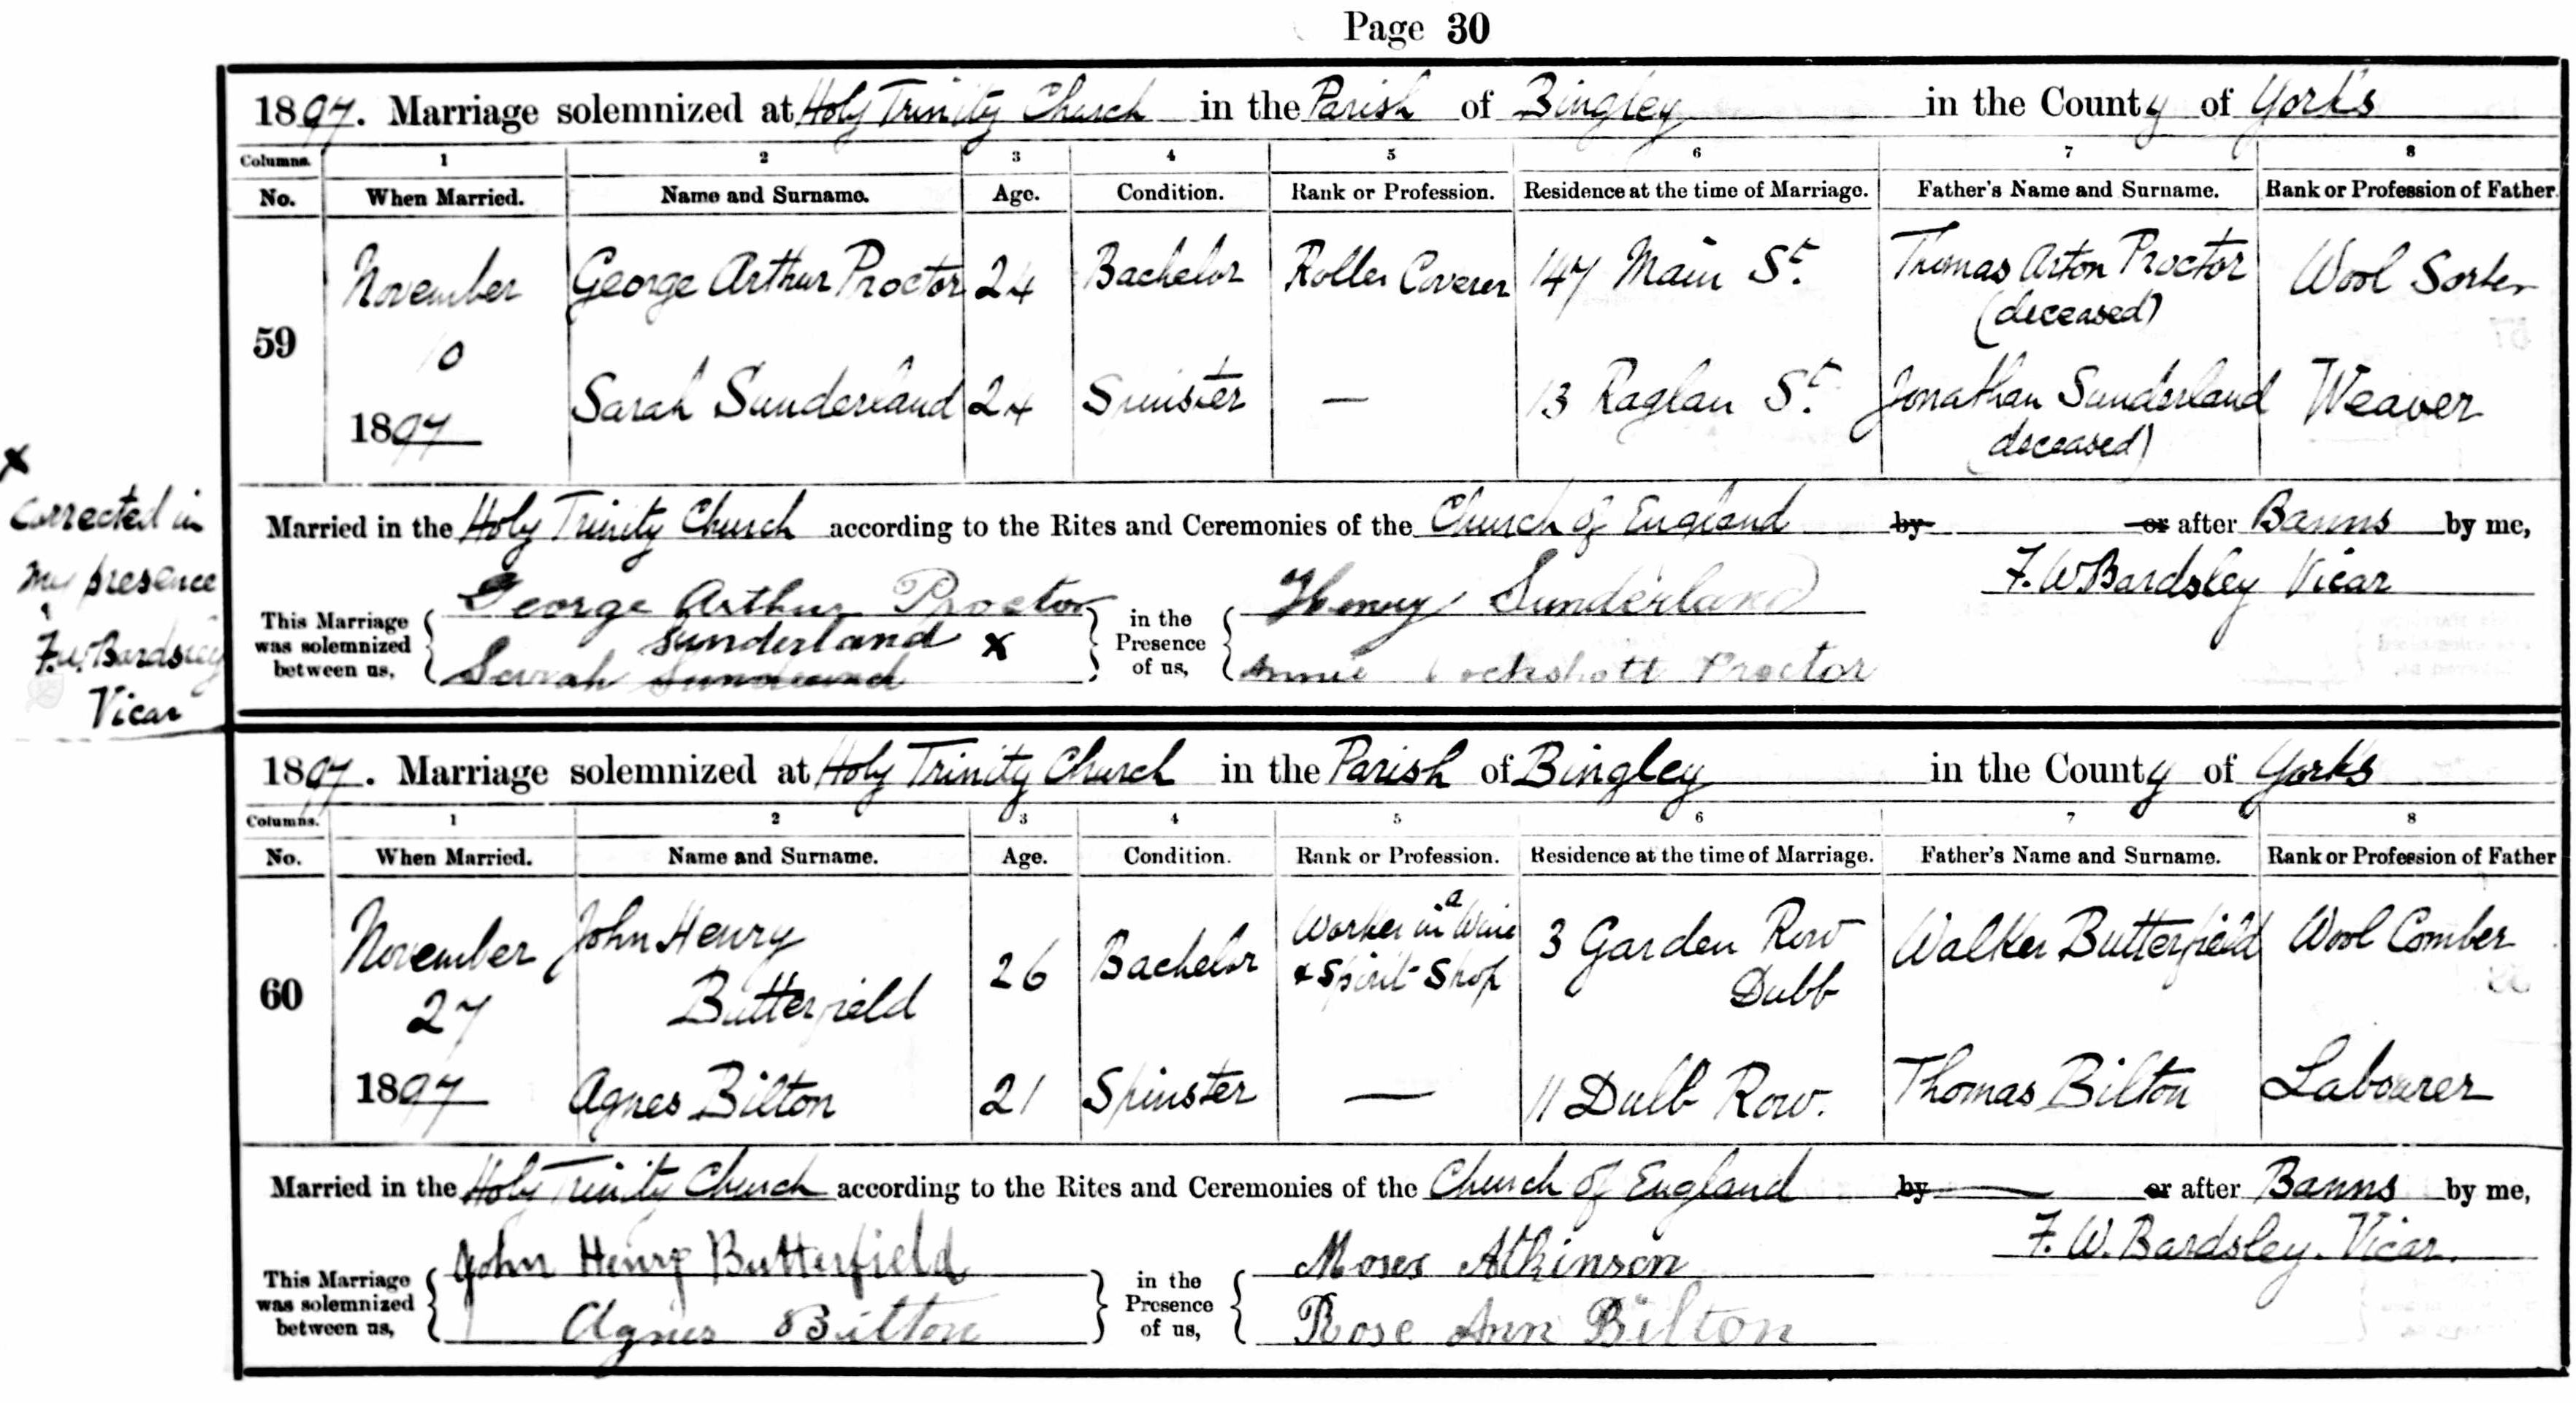 Page 30
1897. Marriage solemnized at Holy Trinity Church in the Parish of Bingley in the County of Yorks
Columns. 1 2 3 4 5 6 7 8
No. When Married. Name and Surname. Age. Condition. Rank or Profession. Residence at the time of Marriage. Father's Name and Surname. Rank or Profession of Father
November George Arthur Proctor 24 Bachelor Roller Coverer 147 Main St. Thomas Arton Proctor Wool Sorter
(deceased)
59
10
Sarah Sunderland 24 Spinster — 13 Raglan St. Jonathan Sunderland Weaver
1897 (deceased)
x
corrected in
my presence
F.W. Bardsley
Vicar
Married in the Holy Trinity Church according to the Rites and Ceremonies of the Church of England by or after Banns by me,
F. W Bardsley Vicar
This Marriage was solemnized between us,
George Arthur Proctor
Sunderland x
Sarah
in the Presence of us,
Henry Sunderland
Annie Proctor
1897. Marriage solemnized at Holy Trinity Church in the Parish of Bingley in the County of Yorks
Columns. 1 2 3 4 5 6 7 8
No. When Married. Name and Surname. Age. Condition. Rank or Profession. Residence at the time of Marriage. Father's Name and Surname. Rank or Profession of Father
November John Henry 26 Bachelor Worker in a Wine 3 Garden Row Walker Butterfield Wool Comber
60 27 Butterfield & Spirit Shop Dubb
1897 Agnes Bilton 21 Spinster — 11 Dubb Row. Thomas Bilton Labourer
Married in the Holy Trinity Church according to the Rites and Ceremonies of the Church of England by or after Banns by me,
F. W. Bardsley. Vicar.
This Marriage was solemnized between us,
John Henry Butterfield
Agnes Bilton
in the Presence of us,
Moses Atkinson
Rose Ann Bilton